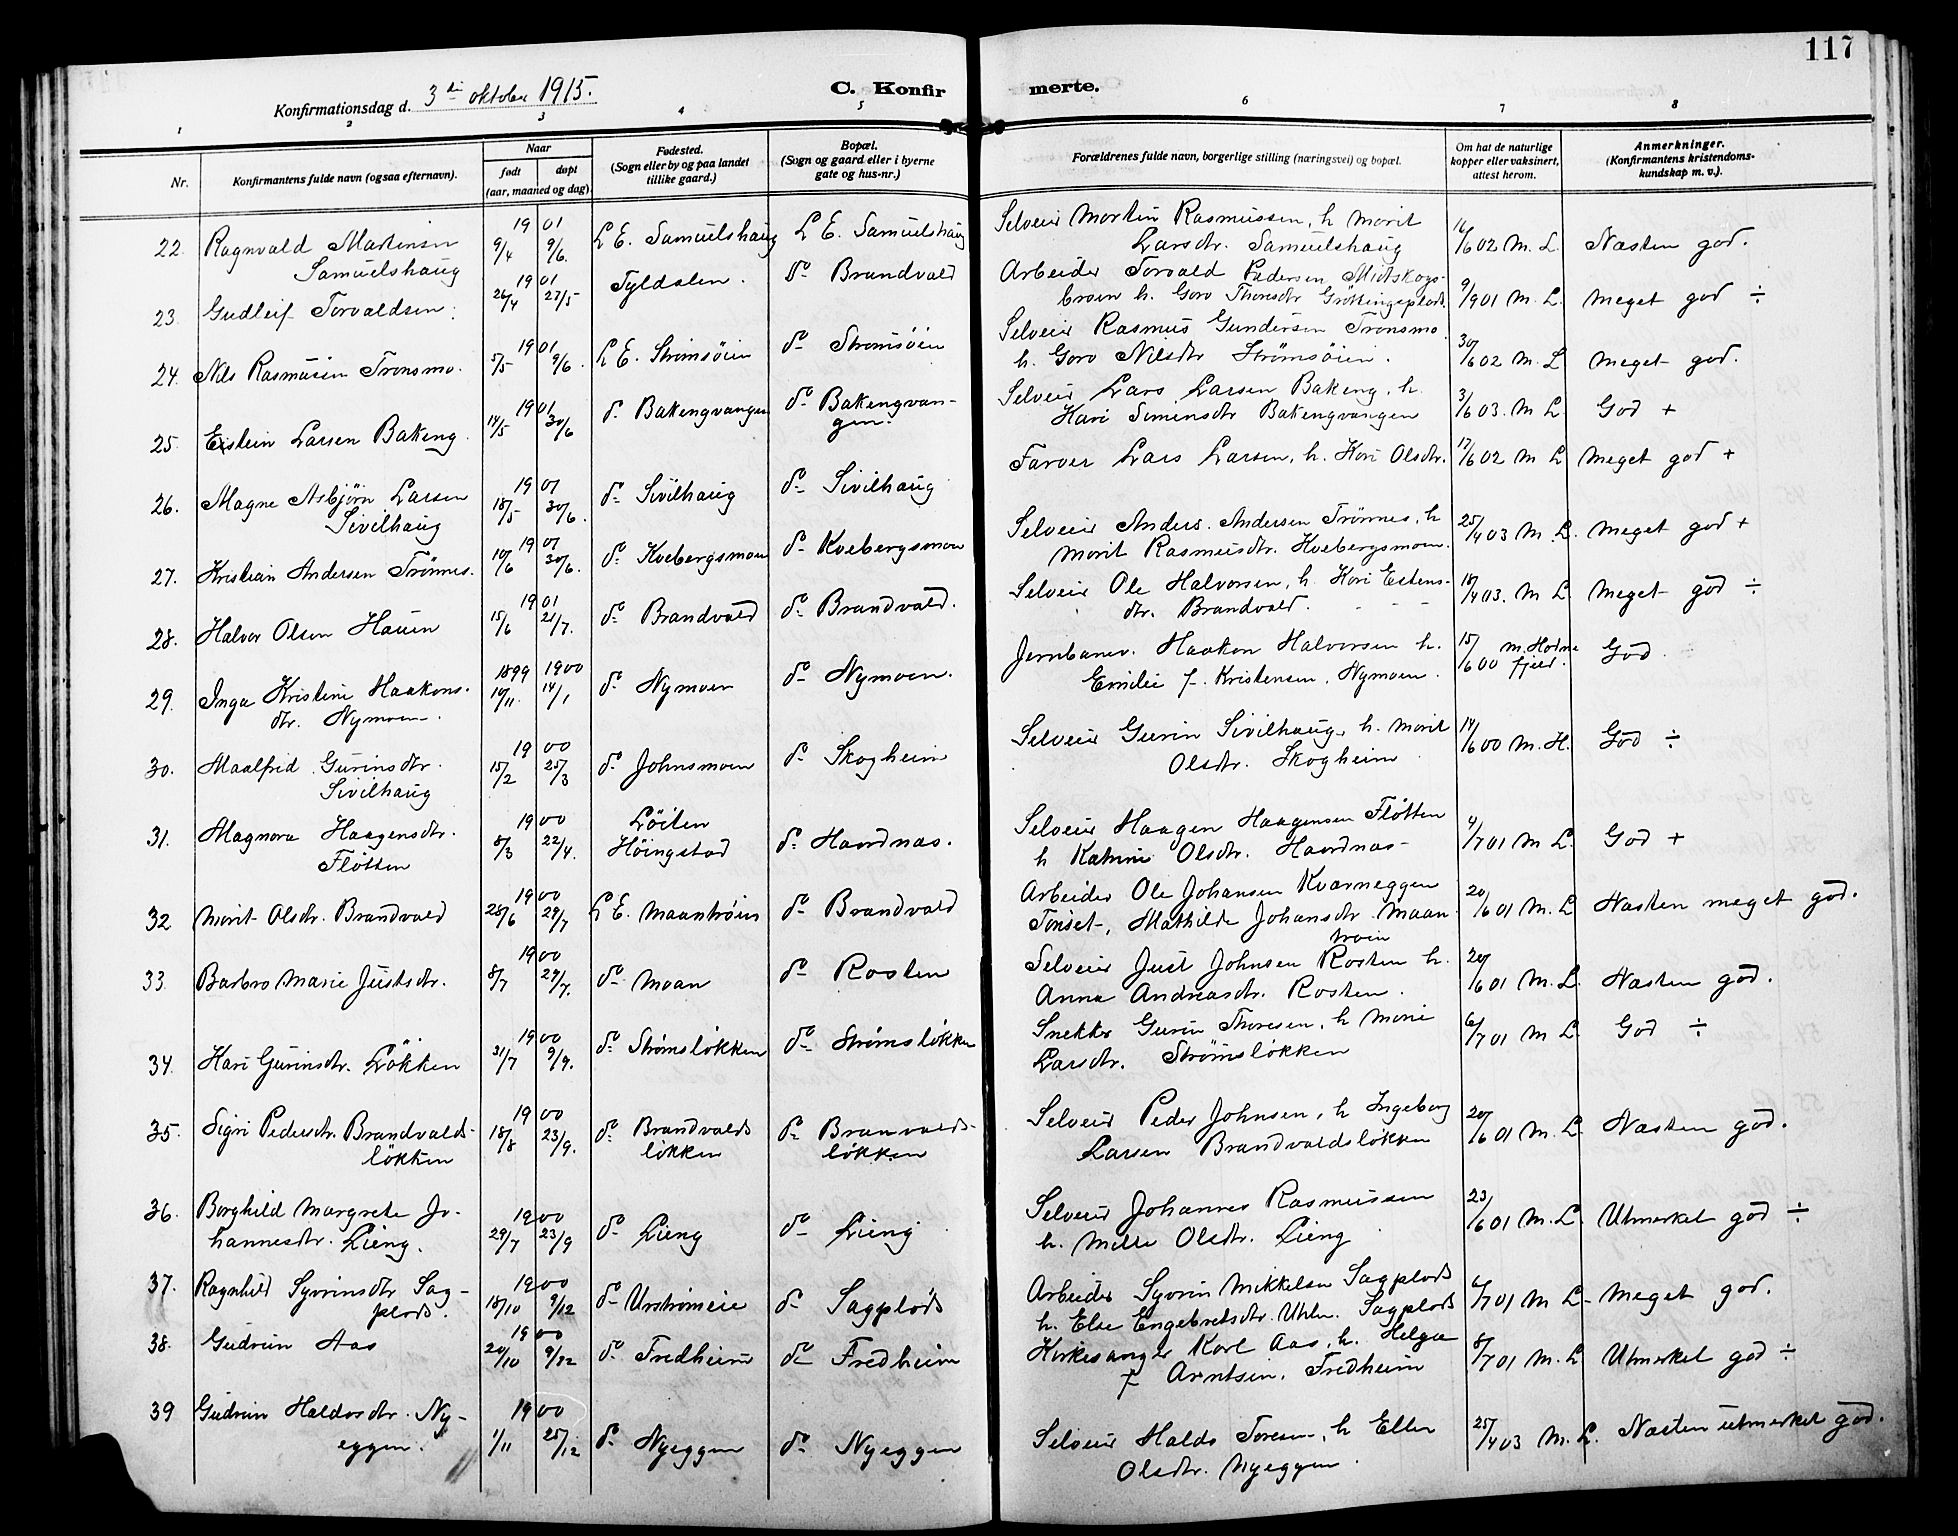 117
Konfirmationsdag d. 3die oktober 1915.
C. Konfir merte.
1 2 3 4 5 6 7 8
Nr.
Konfirmantens fulde navn (ogsaa efternavn).
Naar
født døpt
(aar, maaned og dag)
Fødested.
(Sogn eller by og paa landet
tillike gaard.)
Bopæl.
(Sogn og gaard eller i byerne
gate og hus-nr.)
Forældrenes fulde navn, borgerlige stilling (næringsvei) og bopæl.
Om hat de naturlige
kopper eller vaksinert,
attest herom.
Anmerkninger.
(Konfirmantens kristendoms-
kundskap m. v.).
22. Ragnvald Martensen Samuelshaug 1901 9/4 9/6. L E. Samuelshaug L E. Samuelshaug Selveier Morten Rasmussen, h Marit Larsdtr. Samuelshaug 16/6 02 M. L. Næsten god.
23. Gudleif Torvaldsen. 1901 26/4 27/5 Tyldalen. do Brandvald Arbeider Torvald Pedersen Midtskogsbroen h. Goro Thorsdtr Grøttingsplads. 9/9 01 M. L. Meget god ÷
24. Nils Rasmusen Tronsmo. 1901 5/5 9/6. L E. Strømsöien do Strømsöien Selveier Rasmus Gundersen Tronsmo h. Goro Nilsdtr Strømsöien. 30/6 02 M. L Meget god.
25. Eistein Larsen Bakeng. 1901 14/5 30/6 do Bakengvangen do Bakengvangen. Selveier Lars Larsen Bakeng, h. Kari Simensdtr Bakengvangen 3/6 03. M L God +
26. Magne Asbjørn Larsen Sivilhaug 1901 18/5 30/6. do Sivilhaug do Sivilhaug Farver Lars Larsen, h. Kari Olsdtr. 17/6 02 M L Meget god +
27. Kristian Andersen Trönnes. 1901 10/6 30/6. do Kvebergsmoen do Kvebergsmoen Selveier Anders Andersen Trönnes, h Marit Rasmusdtr. Kvebergsmoen. 25/4 03 M. L. Meget god +
28. Halvor Olsen Hauen 1901 15/6 21/7. do Brandvald do Brandvald. Selveier Ole Halvorsen, h. Kari Estensdtr. Brandvald. 18/4 03. M L. Meget god ÷
29. Inga Kristine Haakonsdtr. Nymoen. 1899 10/11. 1900 14/1 do Nymoen do Nymoen. Jernbanev. Haakon Halvorsen h. Emilie f. Kristensen, Nymoen. 15/6 00 M. Hornefjeld. God
30. Maalfrid Gurinsdtr. Sivilhaug 1900 15/2 25/3 do Johnsmoen do Skogheim Selveier Gurin Sivilhaug, h. Marit Olsdtr. Skogheim 14/6 00 M. H. God ÷
31. Magnora Haagensdtr. Fløtten 1900 8/3 22/4. Löiten Höingstad do Haardnas. Selveier Haagen Haagensen Fløtten h Katrine Olsdtr. Haardnas- 4/7 01 M L. God +
32 Marit Olsdtr. Brandvald 1900 28/6 29/7 L E. Maantröien do Brandvald Arbeider Ole Johansen Kvarneggen Tönset, Mathilde Johansdtr. Maantröin 20/6 01 M. L Næsten meget god.
33. Barbro Marie Justsdtr. 1900 8/7 29/7. do Moan do Rosten Selveier Just Johnsen Rosten h. Anna Andreasdtr. Rosten. 20/6 01 M. L. Næsten god.
34. Kari Gurinsdtr. Løkken 1900 31/7 9/9. do Strømsløkken do Strømsløkken Snekker Gurin Thoresen, h Marie Larsdtr. Strømsløkken 6/7 01 M L. God ÷
35. Sigri Pedersdtr. Brandvaldsløkken 1900 18/8 23/9. do Brandvaldsløkken do Branvaldsløkken Selveier Peder Johnsen, h Ingeborg Larsen Brandvaldsløkken 20/6 01 M. L. Næsten god.
36. Borghild Margrete Johannesdtr. Lieng. 1900 29/7 23/9 do Lieng do Lieng Selveier Johannes Rasmussen h. Mille Olsdtr. Lieng 23/6 01 M. L. Utmerket god ÷
37. Ragnhild Syvrinsdtr Sagplads. 1900 18/10 9/12 do Urströmeie do Sagplads Arbeider Syvrin Mikkelsen Sagplads h. Else Engebretsdtr. Uhln. Sagplads 6/7 01 M L. Meget god.
38. Gudrun Aas 1900 20/10 9/12 do Fredheim do Fredheim Kirkesanger Karl Aas, h. Helga f Arntsen, Fredheim 8/7 01 M. L Utmerket god ÷
39 Gudrun Haldosdtr. Nyeggen. 1900 1/11 25/12 do Nyeggen do Nyeggen Selveier Haldo Toresen, h Ellen Olsdtr. Nyeggen. 25/4 03 M. L. Næsten utmerket god.